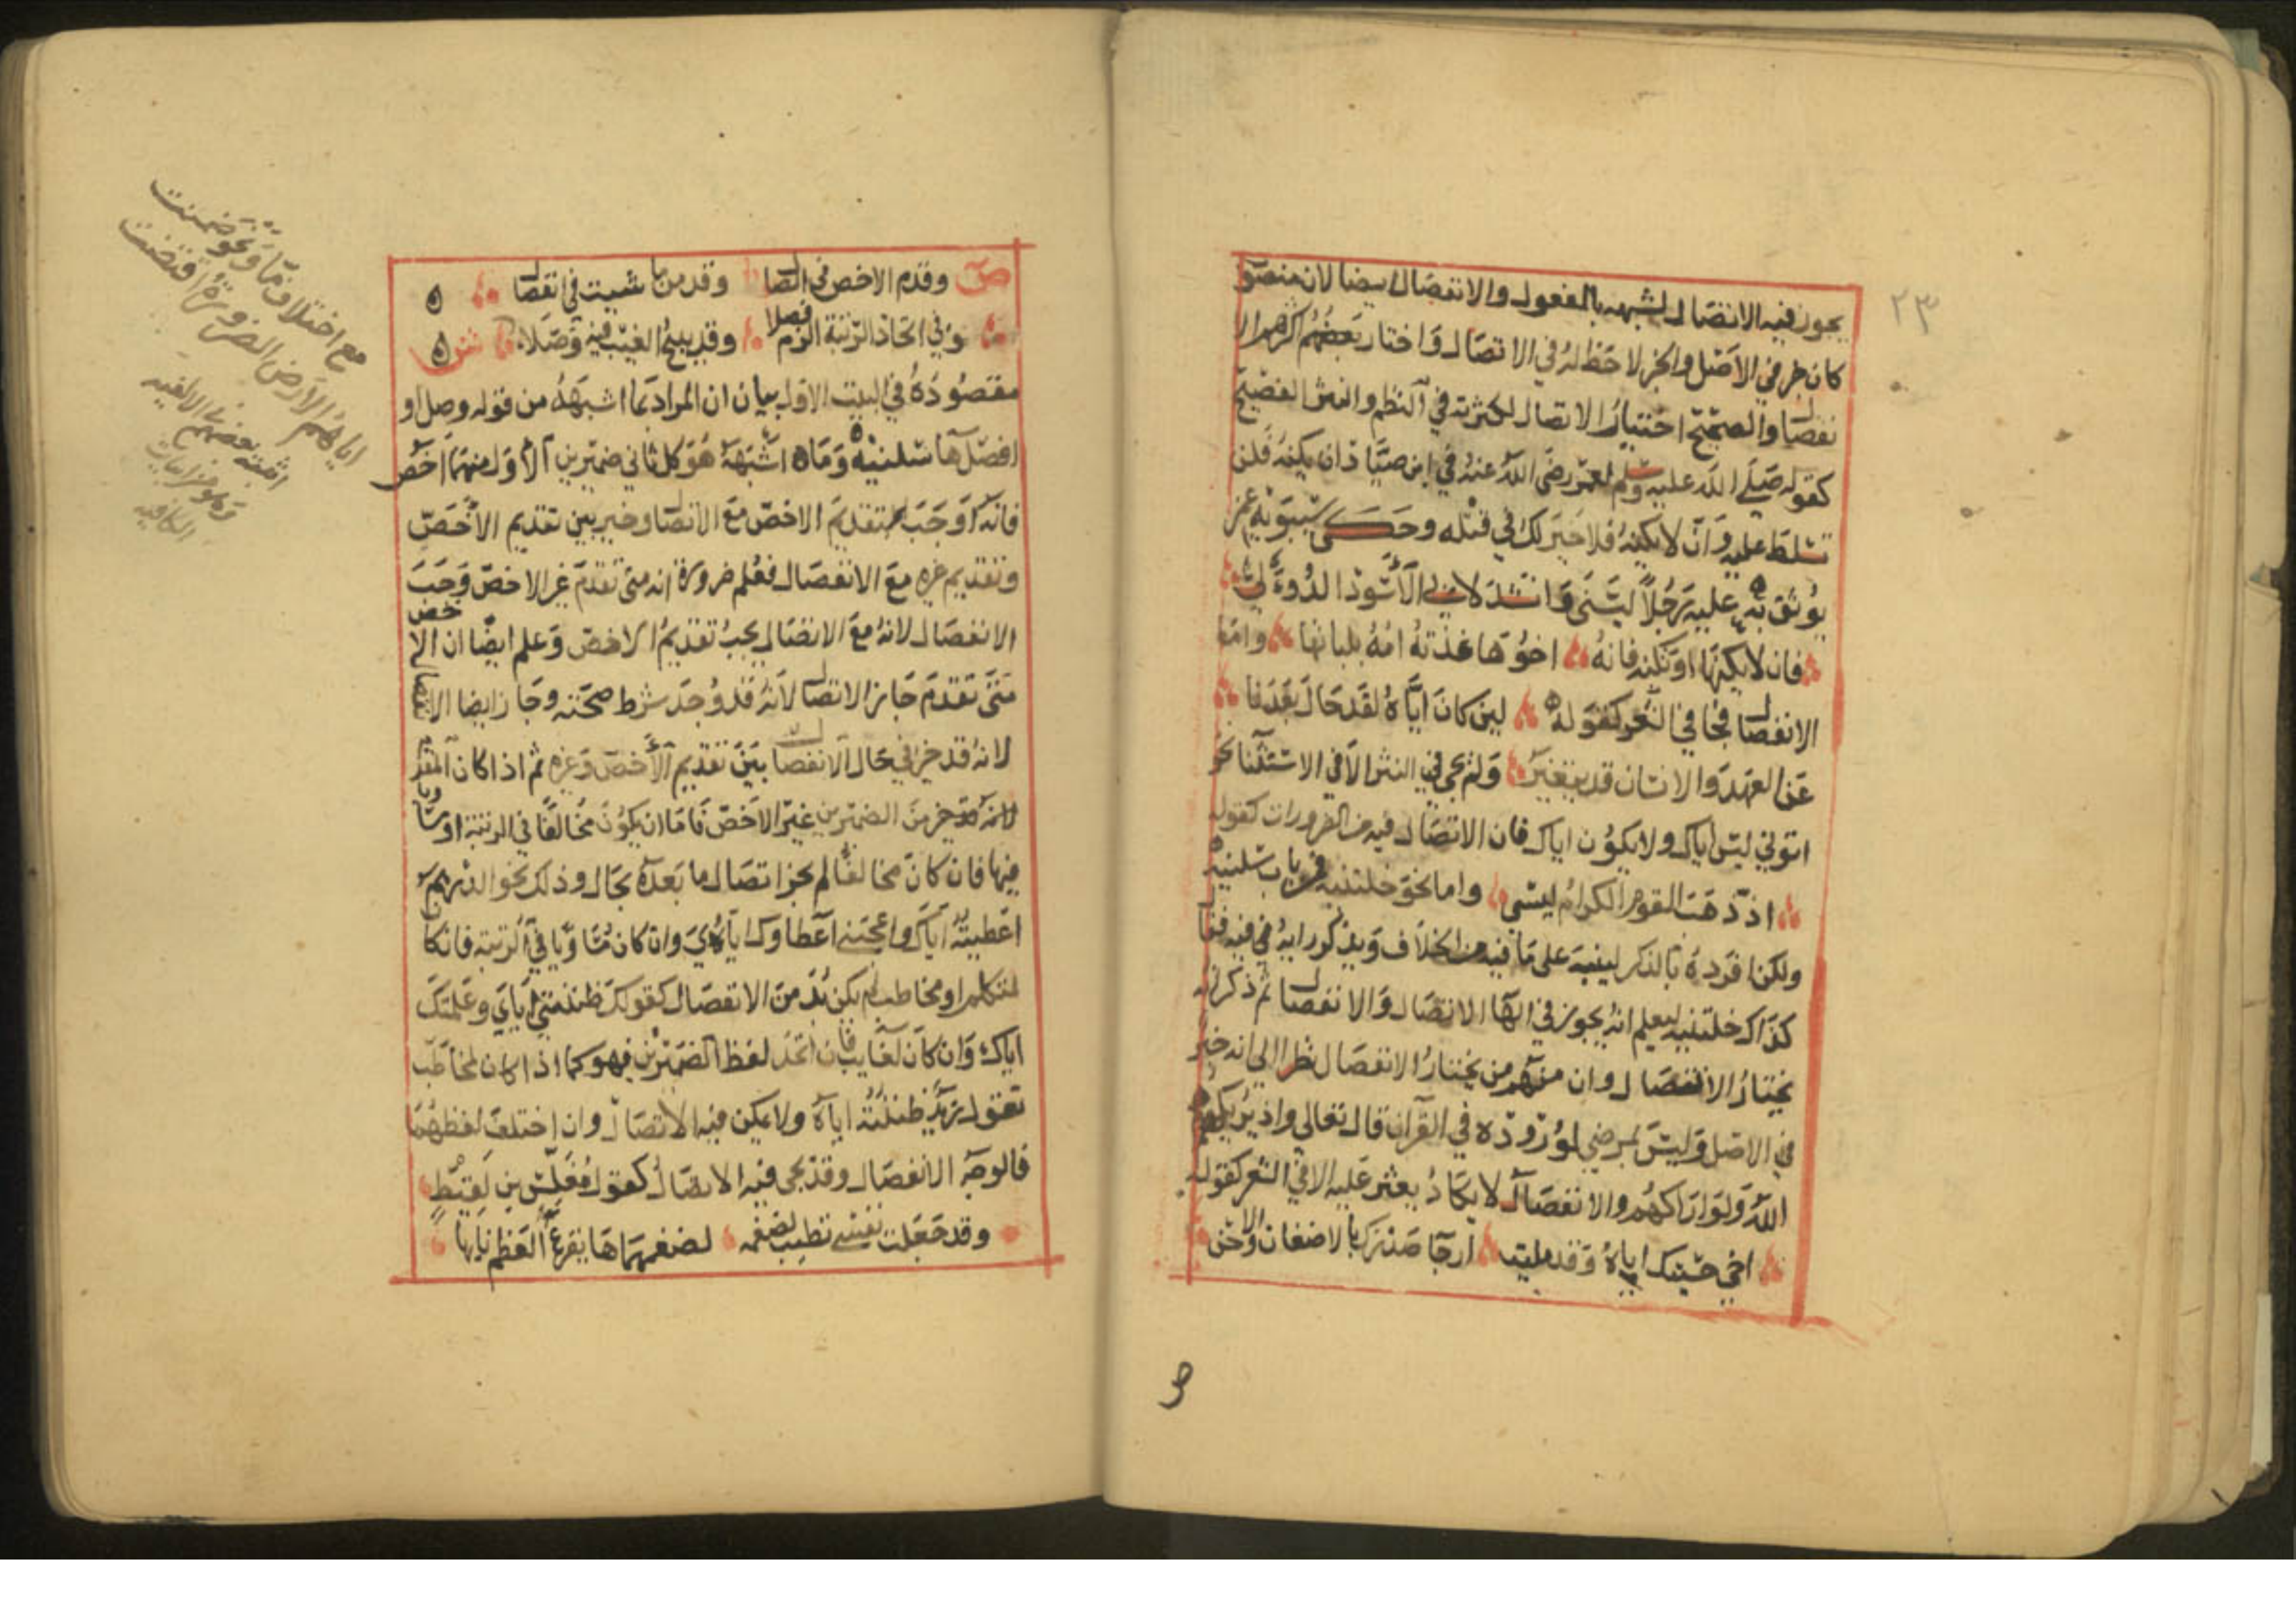 ٢٣
يجوز فيه الاتصال لشبهه بالمفعول والانفصال ايضا لان منصوب
كان خبر في الاصل والخبر لا حظ له في الاتصال واختار بعضهم اكثرهم الا
نفصال والصحيح اختيار الاتصال لكثرته في النظم والنثر الفصيح
كقوله صلى الله عليه وسلم لعمر رضي الله عنه في ابن صياد ان يكنه فلن
تسلط عليه وان لا يكنه فلا خير لك في قتله وحكى سيبويه عمن
يوثق به عليه رجلا ليسنى وانشد لابي الاسود الدؤلي
فان لا يكنها او تكنه فانه اخوها غذته امه بلبانها واما
الانفصال فجا في الشعر كقوله لين كان اياه لقد حال بعدنا
عن العهد والانسان قد يتغير ولم يجي في النثر الا في الاستثنا نحو
اتوني ليس اياك ولا يكون اياك فان الاتصال فيه من الضرورات كقوله
اذ ذهب القوم الكرام ليسي واما نحو خلتنيه فمن باب سلنيه
ولكن افرده بالذكر لينبه على ما فيه من الخلاف ويذكر رايه فيه فقال
كذاك خلتنيه ليعلم انه يجوز في الها الاتصال والانفصال ثم ذكر انه
يختار الاتصال وان منهم من يختار الانفصال نظرا الى انه خبر
في الاصل وليس بمرضي لوروده في القرآن قال تعالى واذ يريكهم
الله ولو اراكهم والانفصال لا يكاد يعثر عليه الا في الشعر كقوله
اخي حسبتك اياه وقد مليت ارجا صدرك بالاضغان والاحن
ص وقدم الاخص في اتصال وقدمن ما شيت في انفصال
وفي اتحاد الرتبة الزم فصلا وقد يبيح الغيب فيه وصلا ش
مقصوده في البيت الاول بيان ان المراد بما اشبهه من قوله وصل او
افصل ها سلنيه وما اشبهه هو كل ثاني ضميرين الاول منهما اخص
فانه اوجب تقديم الاخص مع الاتصال وخير بين تقديم الاخص
وتقديم غيره مع الانفصال فعلم ضرورة انه متى تقدم غير الاخص وجب
الانفصال لانه مع الاتصال يجب تقديم الاخص وعلم ايضا ان الاخص
متى تقدم جاز الاتصال لانه قد وجد شرط صحته وجاز ايضا الانفصال
لانه قد خير في حال الانفصال بين تقديم الاخص وغيره ثم اذا كان المقدم
من الضميرين غير الاخص فاما ان يكون مخالفا في الرتبة او مساويا
فيها فان كان مخالفا لم يجز اتصال ما بعده بحال وذلك نحو الدرهم
اعطيته اياك واعجبني اعطاوك اياي وان كان مساويا في الرتبة فان كان
لمتكلم او مخاطب لم يكن بد من الانفصال كقولك ظننتني اياي وعلمتك
اياك وان كان لغايب فان اتحد لفظ الضميرين فهو كما اذا كان لمخاطب
تقول زيد ظننته اياه ولا يمكن فيه الاتصال وان اختلف لفظهما
فالوجه الانفصال وقد يجي فيه الاتصال كقول مغلس بن لقيط
وقد جعلت نفسي تطيب لضغمه لضغمهماها يقرع العظم نابها
مع اختلاف ما ونحو ضمنت
اياهم الارض الضرورة اقتضت
اثبته بعضهم في الالفيه
وهو من ابيات
الكافيه